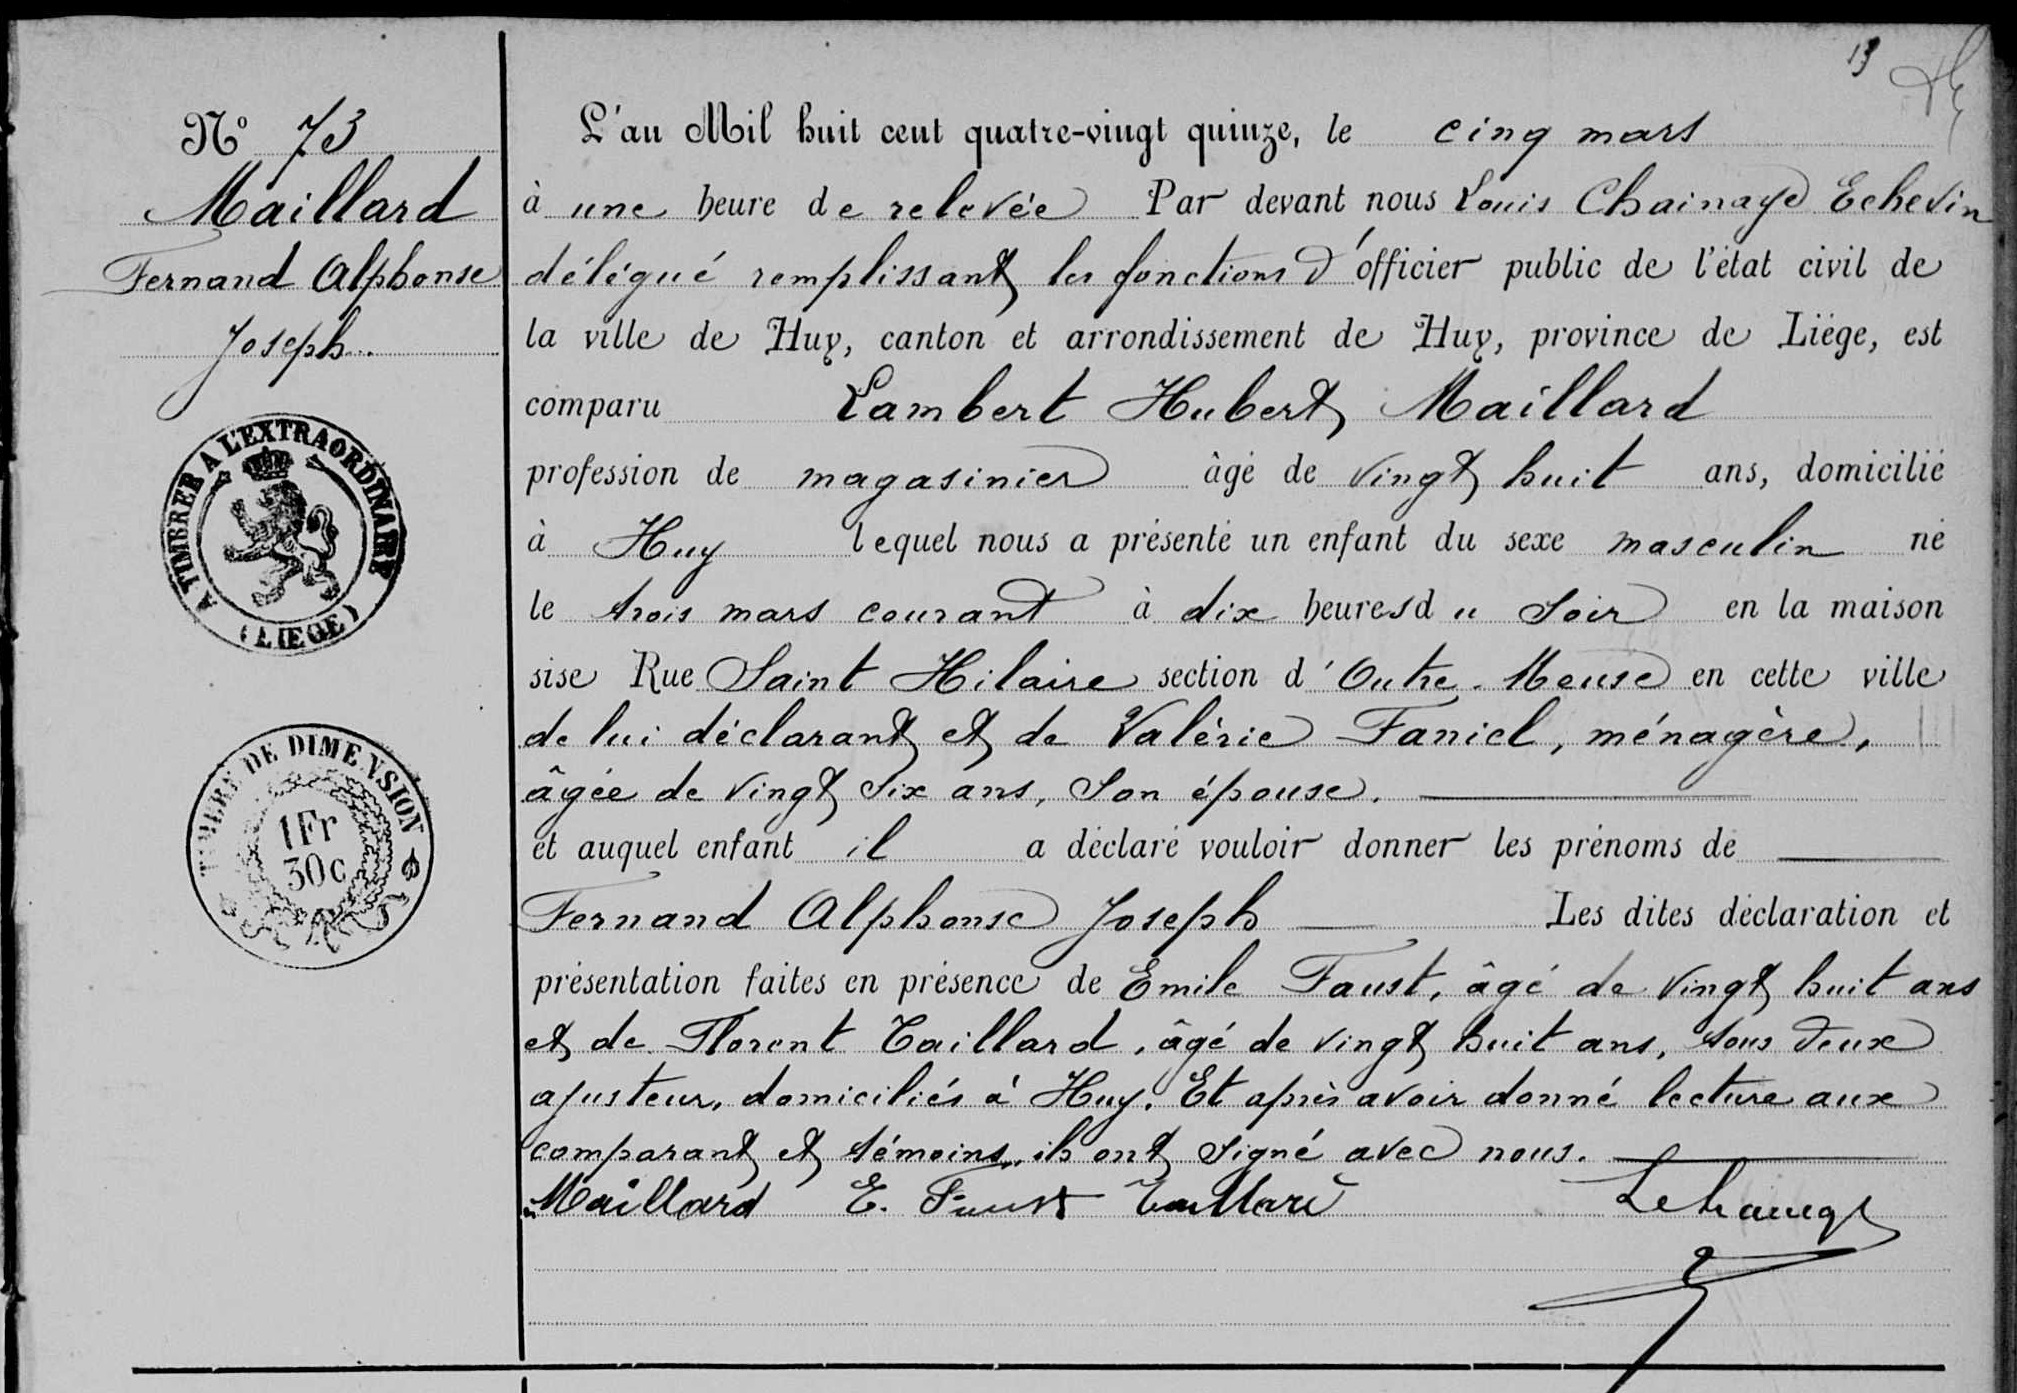 13
N° 73
Maillard
Fernand Alphonse
Joseph.
A TIMBRER A L'EXTRAORDINAIRE
(LIEGE)
TIMBRE DE DIMENSION
1Fr
30c
L'an Mil huit cent quatre-vingt quinze, le cinq mars
à une heure de relevée Par devant nous Louis Chainaye Echevin
délégué remplissant les fonctions d'officier public de l'état civil de
la ville de Huy, canton et arrondissement de Huy, province de Liége, est
comparu Lambert Hubert Maillard
profession de magasinier âgé de vingt huit ans, domicilié
à Huy lequel nous a présenté un enfant du sexe masculin né
le trois mars courant à dix heures du soir en la maison
sise Rue Saint Hilaire section d'Outre-Meuse en cette ville
de lui déclarant et de Valérie Faniel, ménagère,
âgée de vingt six ans, son épouse.
et auquel enfant il a déclaré vouloir donner les prénoms de
Fernand Alphonse Joseph Les dites déclaration et
présentation faites en présence de Emile Faust, âgé de vingt huit ans
et de Florent Taillard, âgé de vingt huit ans, tous deux
ajusteur, domiciliés à Huy. Et après avoir donné lecture aux
comparant et témoins, ils ont signé avec nous.
Maillard E. Faust Taillard